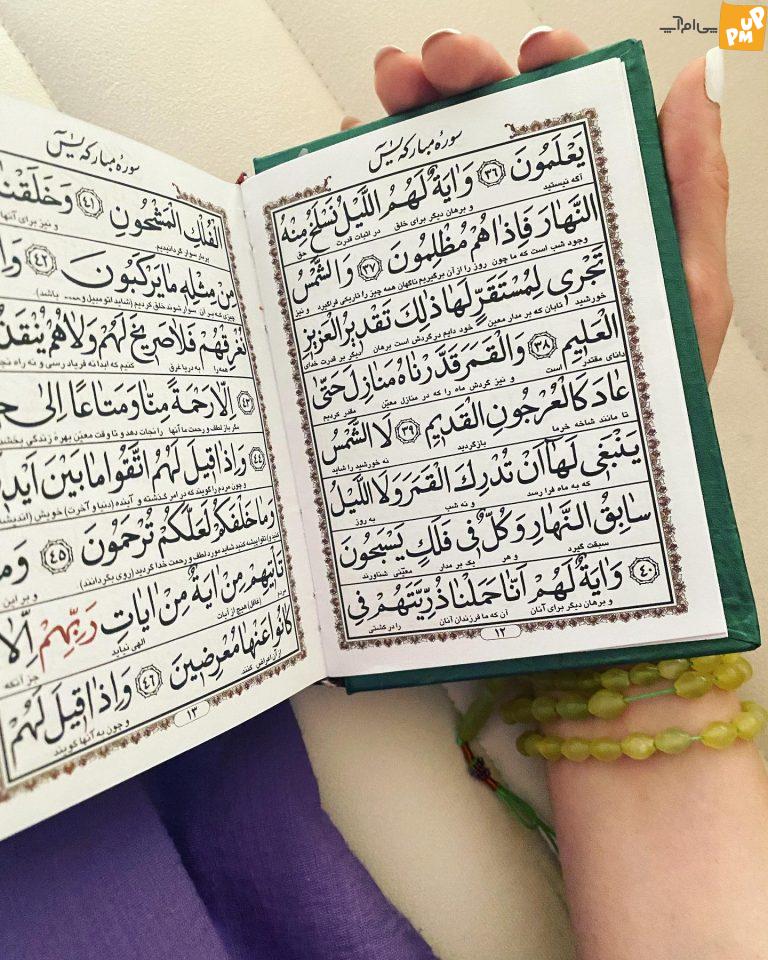 پی‌ام‌آپ
UP
PM
سورهٔ مبارکه یٰسٓ
یَعْلَمُونَ ﴿۳۶﴾ وَایَةٌ لَهُمُ اللَّیْلُ نَسْلَخُ مِنْهُ
آگه نیستید و برهان دیگر برای خلق در اثبات قدرت حق
النَّهارَ فَاِذاهُمْ مُظْلِمُونَ ﴿۳۷﴾ وَالشَّمْسُ
وجود شب است که ما چون روز را از آن برگیریم ناگهان همه چیز را تاریکی فراگیرد و نیز
تَجْری لِمُسْتَقَرٍّ لَها ذلِكَ تَقْدیرُ الْعَزیزِ
خورشید تابان که بر مدار معین خود دایم در گردش است برهان دیگر بر قدرت خدای
الْعَلیمِ ﴿۳۸﴾ وَالْقَمَرَ قَدَّرْناهُ مَنازِلَ حَتّی
دانای مقتدر است و نیز گردش ماه را که در منازل معین مقدر کردیم
عادَ کَالْعُرْجُونِ الْقَدیمِ ﴿۳۹﴾ لَا الشَّمْسُ
تا مانند شاخه خرما بازگردید نه خورشید را شاید
یَنْبَغی لَها اَنْ تُدْرِكَ الْقَمَرَ وَلَا اللَّیْلُ
که به ماه فرا رسد و نه شب
سابِقُ النَّهارِ وَکُلٌّ فی فَلَكٍ یَسْبَحُونَ
به روز سبقت گیرد و هر یک بر مدار معینی شناورند
﴿۴۰﴾ وَایَةٌ لَهُمْ اَنّا حَمَلْنا ذُرِّیَّتَهُمْ فِی
و برهان دیگر برای آنان آن که ما فرزندان آنان را در کشتی
۱۲
سورهٔ مبارکه یٰسٓ
الْفُلْكِ الْمَشْحُونِ ﴿۴۱﴾ وَخَلَقْنا
پربار سوار گردانیدیم و نیز برای آنها
مِنْ مِثْلِهِ ما یَرْکَبُونَ ﴿۴۲﴾
چیزی که بر آن سوار شوند خلق کردیم (شاید اتومبیل و.... باشد).
نُغْرِقْهُمْ فَلا صَریخَ لَهُمْ وَلا هُمْ
همه را به دریا غرق کنیم که ابدا نه فریاد رسی و نه راه
﴿۴۳﴾ اِلّا رَحْمَةً مِنّا وَمَتاعًا اِلی
مگر باز لطف و رحمت ما آنها را نجات دهد و تا وقت معین بهرهٔ زندگی
﴿۴۴﴾ وَاِذا قیلَ لَهُمُ اتَّقُوا ما بَیْنَ
و چون مردم را گویند که در امر گذشته و آینده (دنیا و آخرت) خویش
وَما خَلْفَکُمْ لَعَلَّکُمْ تُرْحَمُونَ ﴿۴۵﴾
کنید) و تقوا پیشه کنید شاید مورد لطف و رحمت خدا گردید (روی بگردانند) و بر این
تَأْتیهِمْ مِنْ ایَةٍ مِنْ ایاتِ رَبِّهِمْ اِلّا
مردم (غافل) هیچ از آیات الهی نیاید جز آنکه
کانُوا عَنْها مُعْرِضینَ ﴿۴۶﴾ وَاِذا قیلَ لَهُمْ
از آن اعراض کنند و چون به آنها گویند
۱۳